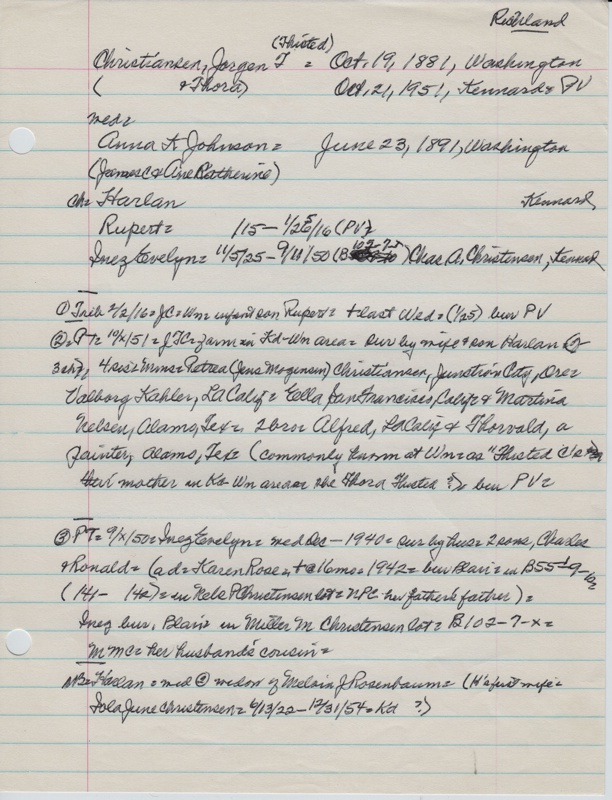 Richland
(Thisted)
Christiansen, Jorgen T = Oct. 19, 1881, Washington
( & Thora) Oct. 21, 1951, Kennard & PV
med=
Anna K Johnson= June 23, 1891, Washington
(James C & Ane Katherine)
ch= Harlan Kennard,
Rupert= /15 - 1/25/16 (PV)
Inez Evelyn= 11/5/25 - 9/11/50 (B 102-7-x) Chas A. Christensen, Kennard
① Trib 2/2/16= JC= Wn= infant son Rupert= last Wed= (1/25) bur PV
② PT= 10/x/51= JTC= farm in Kd-Wn area= sur by wife & son Harlan
4 sis= Mmes= Petrea (Jens Mogensen) Christiansen, Junction City, Ore=
Valborg Kahler, LaCalif= Ella San Francisco, Calif= & Martina
Nelsen, Alamo, Tex=, 2 bro= Alfred, LaCalif & Thorvald, a
painter, Alamo, Tex= (commonly known at Wn= as "Thisted
their mother in Kd-Wn area= the Thora Thisted ?)= bur PV=
③ PT= 9/x/50= Inez Evelyn= med Dec - 1940= sur by hus= 2 sons, Charles
& Ronald= (a d= Karen Rose= 16mos= 1942= bur Blair= in B55-
(141- 142)= in Nels P Christensen lot= NPC her father's father)=
Inez bur. Blair in Miller M Christensen lot= B102-7-x=
MMC= her husband's cousin=
NB= Harlan= med @ widow of Melvin J Rosenbaum= (H's first wife=
Iola June Christensen= 6/13/22-12/31/54= Kd ?)